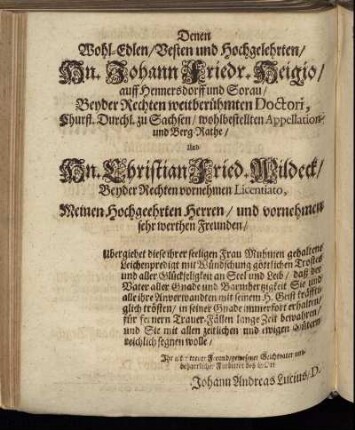 Denen
Wohl-Edlen/Vesten und Hochgelehrten/
Hn. Johann Friedr. Heigio/
auff Hennersdorff und Sorau/
Beyder Rechten weitberühmten Doctori,
Churfl. Durchl. zu Sachsen/wohlbestellten Appellation-
und Berg Rathe/
Und
Hn. Christian Fried. Wildeck/
Beyder Rechten vornehmen Licentiato,
Meinen Hochgeehrten Herren/und vornehmen
sehr werthen Freunden/
Ubergiebet diese ihrer seeligen Frau Muhmen gehaltene
Leichenpredigt mit Wündschung göttlichen Trostes
und aller Glückseligkeit an Seel und Leib/daß der
Vater aller Gnade und Barmhertzigkeit Sie und
alle ihre Anverwandten mit seinem H. Geist kräfftig-
lich trösten/in seiner Gnade immerfort erhalten/
für fernern Trauer-Fällen lange Zeit bewahren/
und Sie mit allen zeitlichen und ewigen Gütern
reichlich segnen wolle/
Ihr treuer Freund/gewesener Beichtvater und
beharrlicher Fürbitter bey GOtt
Johann Andreas Lucius/D.